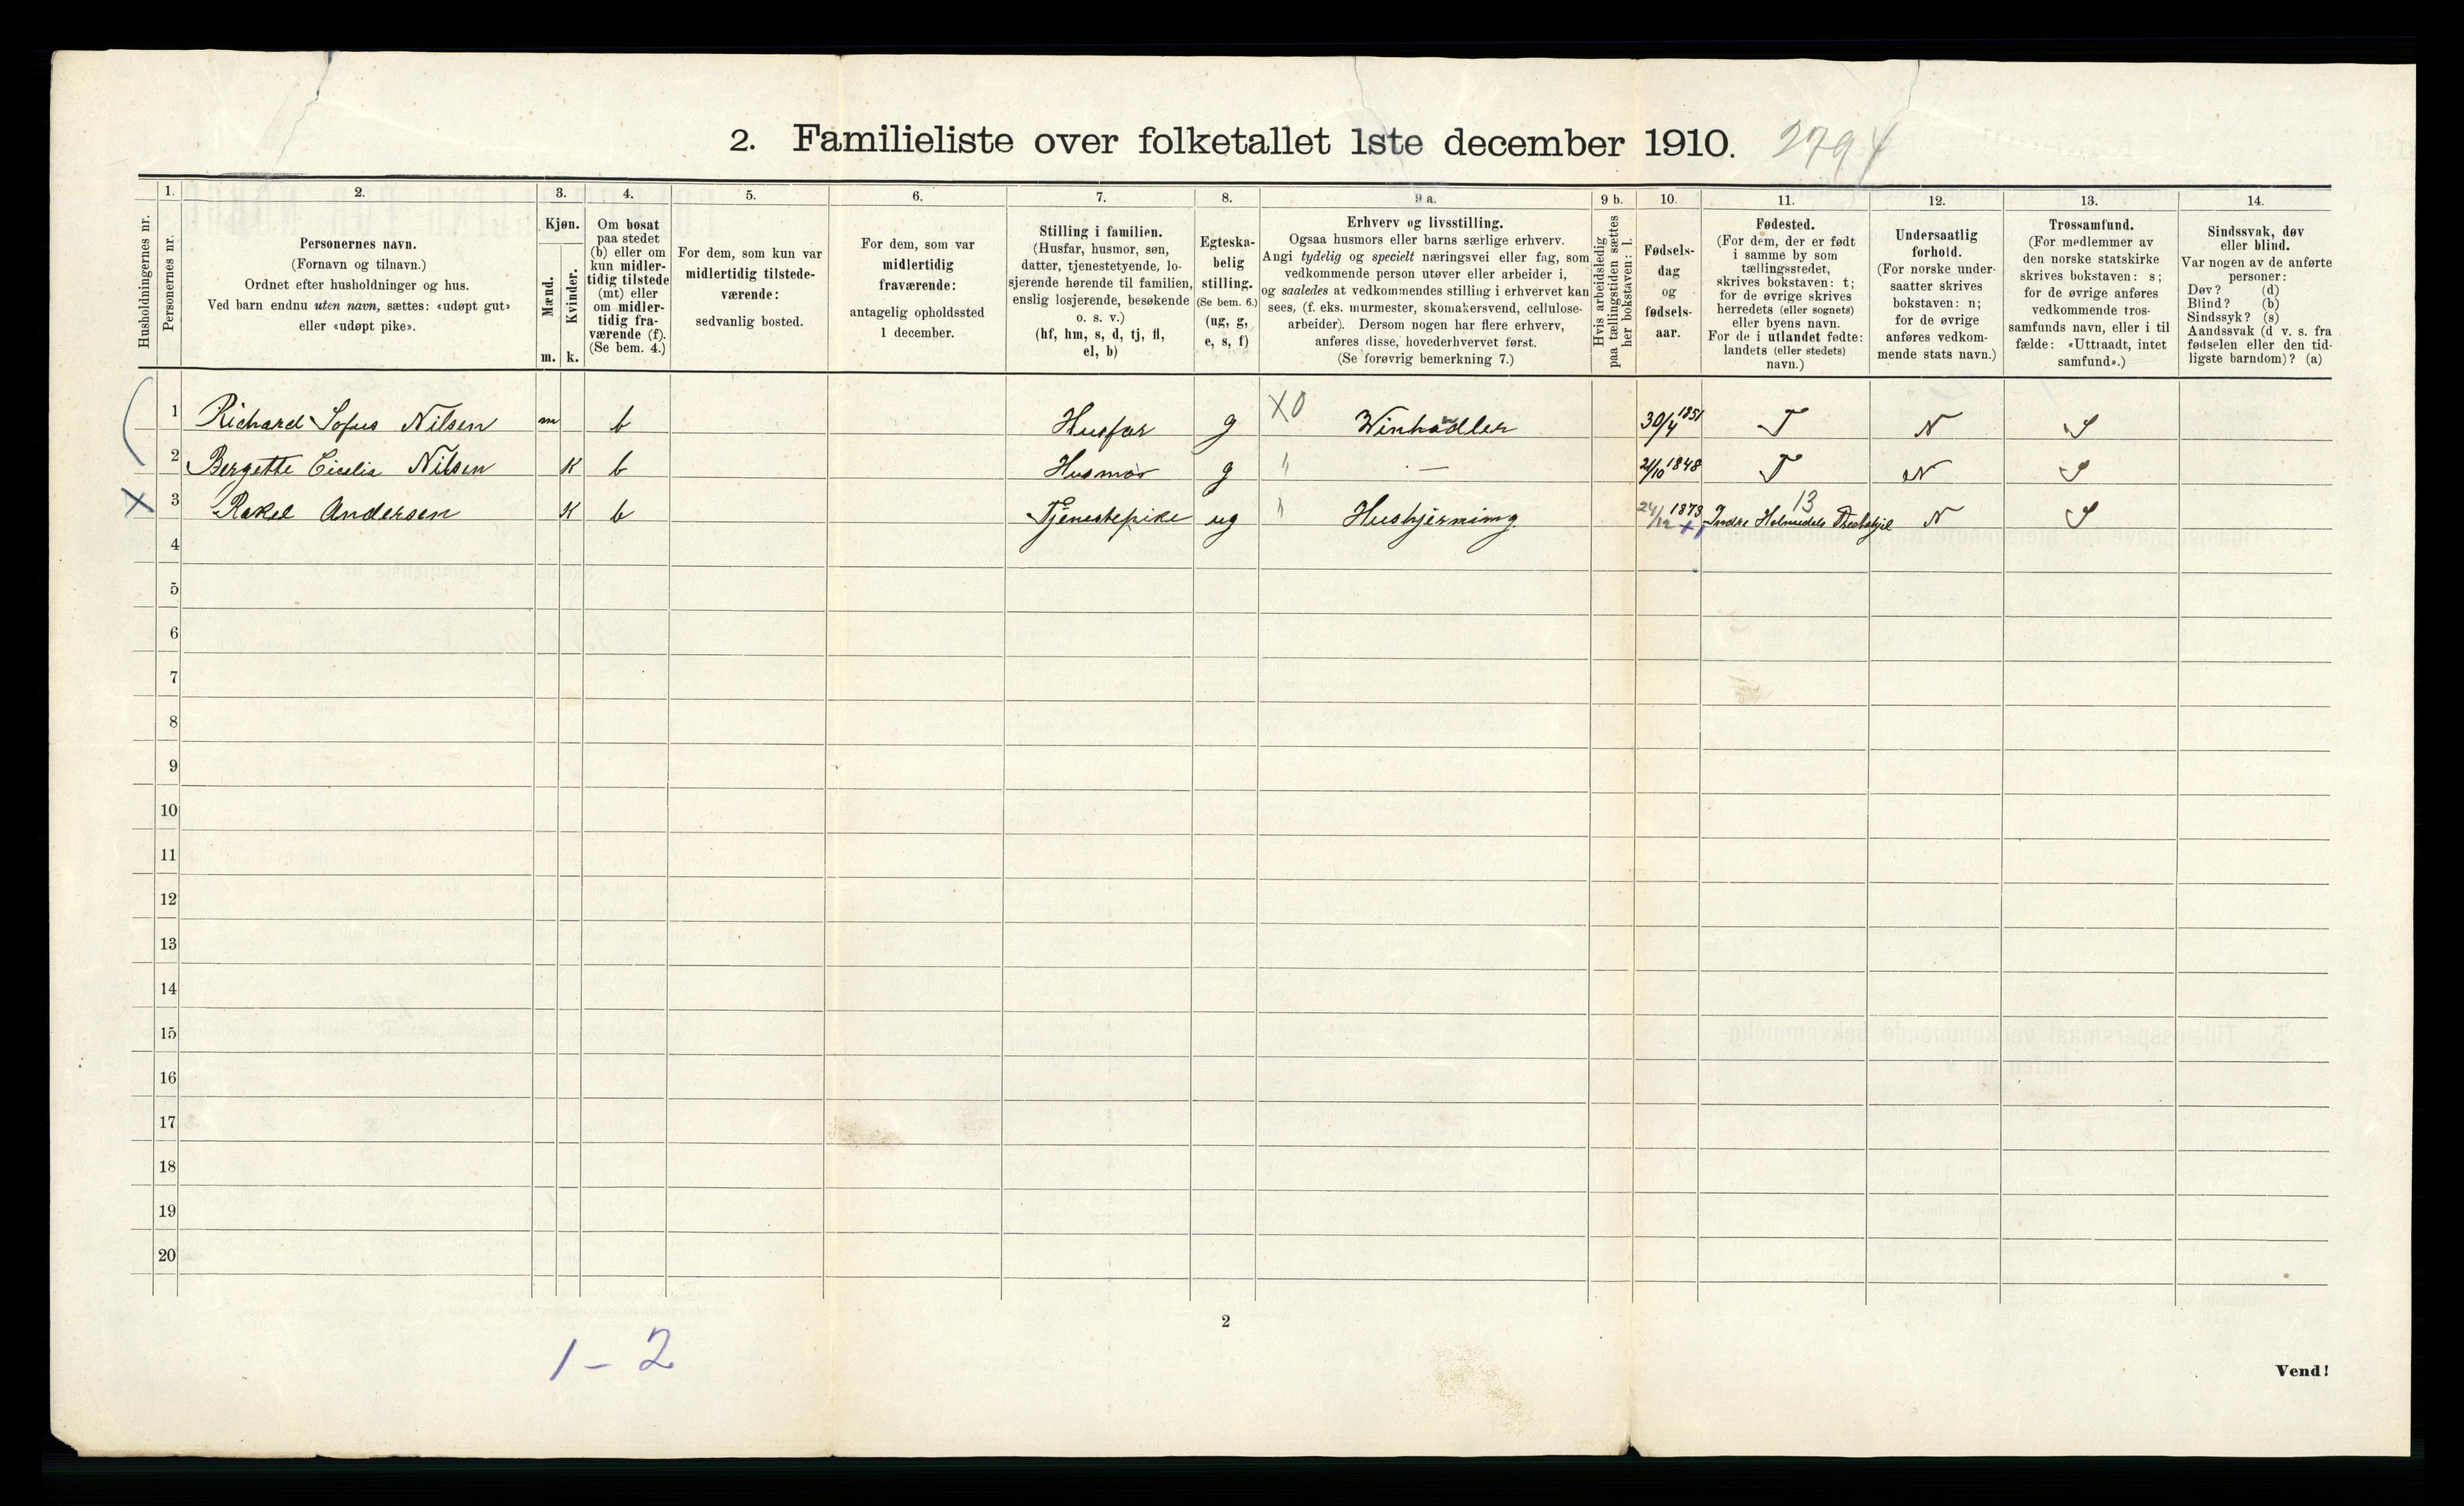 2. Familieliste over folketallet 1ste december 1910. 2794
Husholdningernes nr.
1. Personernes nr.
2.
Personernes navn.
(Fornavn og tilnavn.)
Ordnet efter husholdninger og hus.
Ved barn endnu uten navn, sættes: «udøpt gut»
eller «udøpt pike».
3.
Kjøn.
Mænd.
m.
Kvinder.
k.
4.
Om bosat
paa stedet
(b) eller om
kun midler-
tidig tilstede
(mt) eller
om midler-
tidig fra-
værende (f).
(Se bem. 4.)
5.
For dem, som kun var
midlertidig tilstede-
værende:
sedvanlig bosted.
6.
For dem, som var
midlertidig
fraværende:
antagelig opholdssted
1 december.
7.
Stilling i familien.
(Husfar, husmor, søn,
datter, tjenestetyende, lo-
sjerende hørende til familien,
enslig losjerende, besøkende
o. s. v.)
(hf, hm, s, d, tj, fl,
el, b)
8.
Egteska-
belig
stilling.
(Se bem. 6.)
(ug, g,
e, s, f)
9 a.
Erhverv og livsstilling.
Ogsaa husmors eller barns særlige erhverv.
Angi tydelig og specielt næringsvei eller fag, som
vedkommende person utøver eller arbeider i,
og saaledes at vedkommendes stilling i erhvervet kan
sees, (f. eks. murmester, skomakersvend, cellulose-
arbeider). Dersom nogen har flere erhverv,
anføres disse, hovederhvervet først.
(Se forøvrig bemerkning 7.)
9 b.
Hvis arbeidsledig
paa tællingstiden sættes
her bokstaven: l.
10.
Fødsels-
dag
og
fødsels-
aar.
11.
Fødested.
(For dem, der er født
i samme by som
tællingsstedet,
skrives bokstaven: t;
for de øvrige skrives
herredets (eller sognets)
eller byens navn.
For de i utlandet fødte:
landets (eller stedets)
navn.)
12.
Undersaatlig
forhold.
(For norske under-
saatter skrives
bokstaven: n;
for de øvrige
anføres vedkom-
mende stats navn.)
13.
Trossamfund.
(For medlemmer av
den norske statskirke
skrives bokstaven: s;
for de øvrige anføres
vedkommende tros-
samfunds navn, eller i til
fælde: «Uttraadt, intet
samfund».)
14.
Sindssvak, døv
eller blind.
Var nogen av de anførte
personer:
Døv? (d)
Blind? (b)
Sindssyk? (s)
Aandssvak (d v. s. fra
fødselen eller den tid-
ligste barndom)? (a)
1 Richard Sofus Nilsen m b Husfar g X0 Winhandler 30/4 1851 T N S
2 Bergette Cicelia Nilsen K b Husmor g " — 21/10 1848 T N S
X 3 Rakel Andersen K b Tjenestepike ug " Hushjerning 24/12 1873 +1 13 Indre Holmedals Prestegjel N S
4
5
6
7
8
9
10
11
12
13
14
15
16
17
18
19
20
2
1 – 2
Vend!